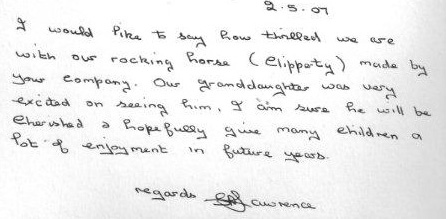 2.5.07
I would like to say how thrilled we are
with our rocking horse (Clippety) made by
your company. Our granddaughter was very
excited on seeing him, I am sure he will be
cherished & hopefully give many children a
lot of enjoyment in future years.
regards Lawrence